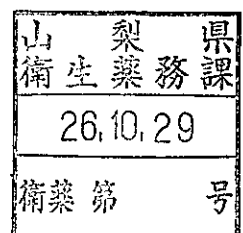 山梨県
衛生薬務課
26.10.29
衛薬第 号